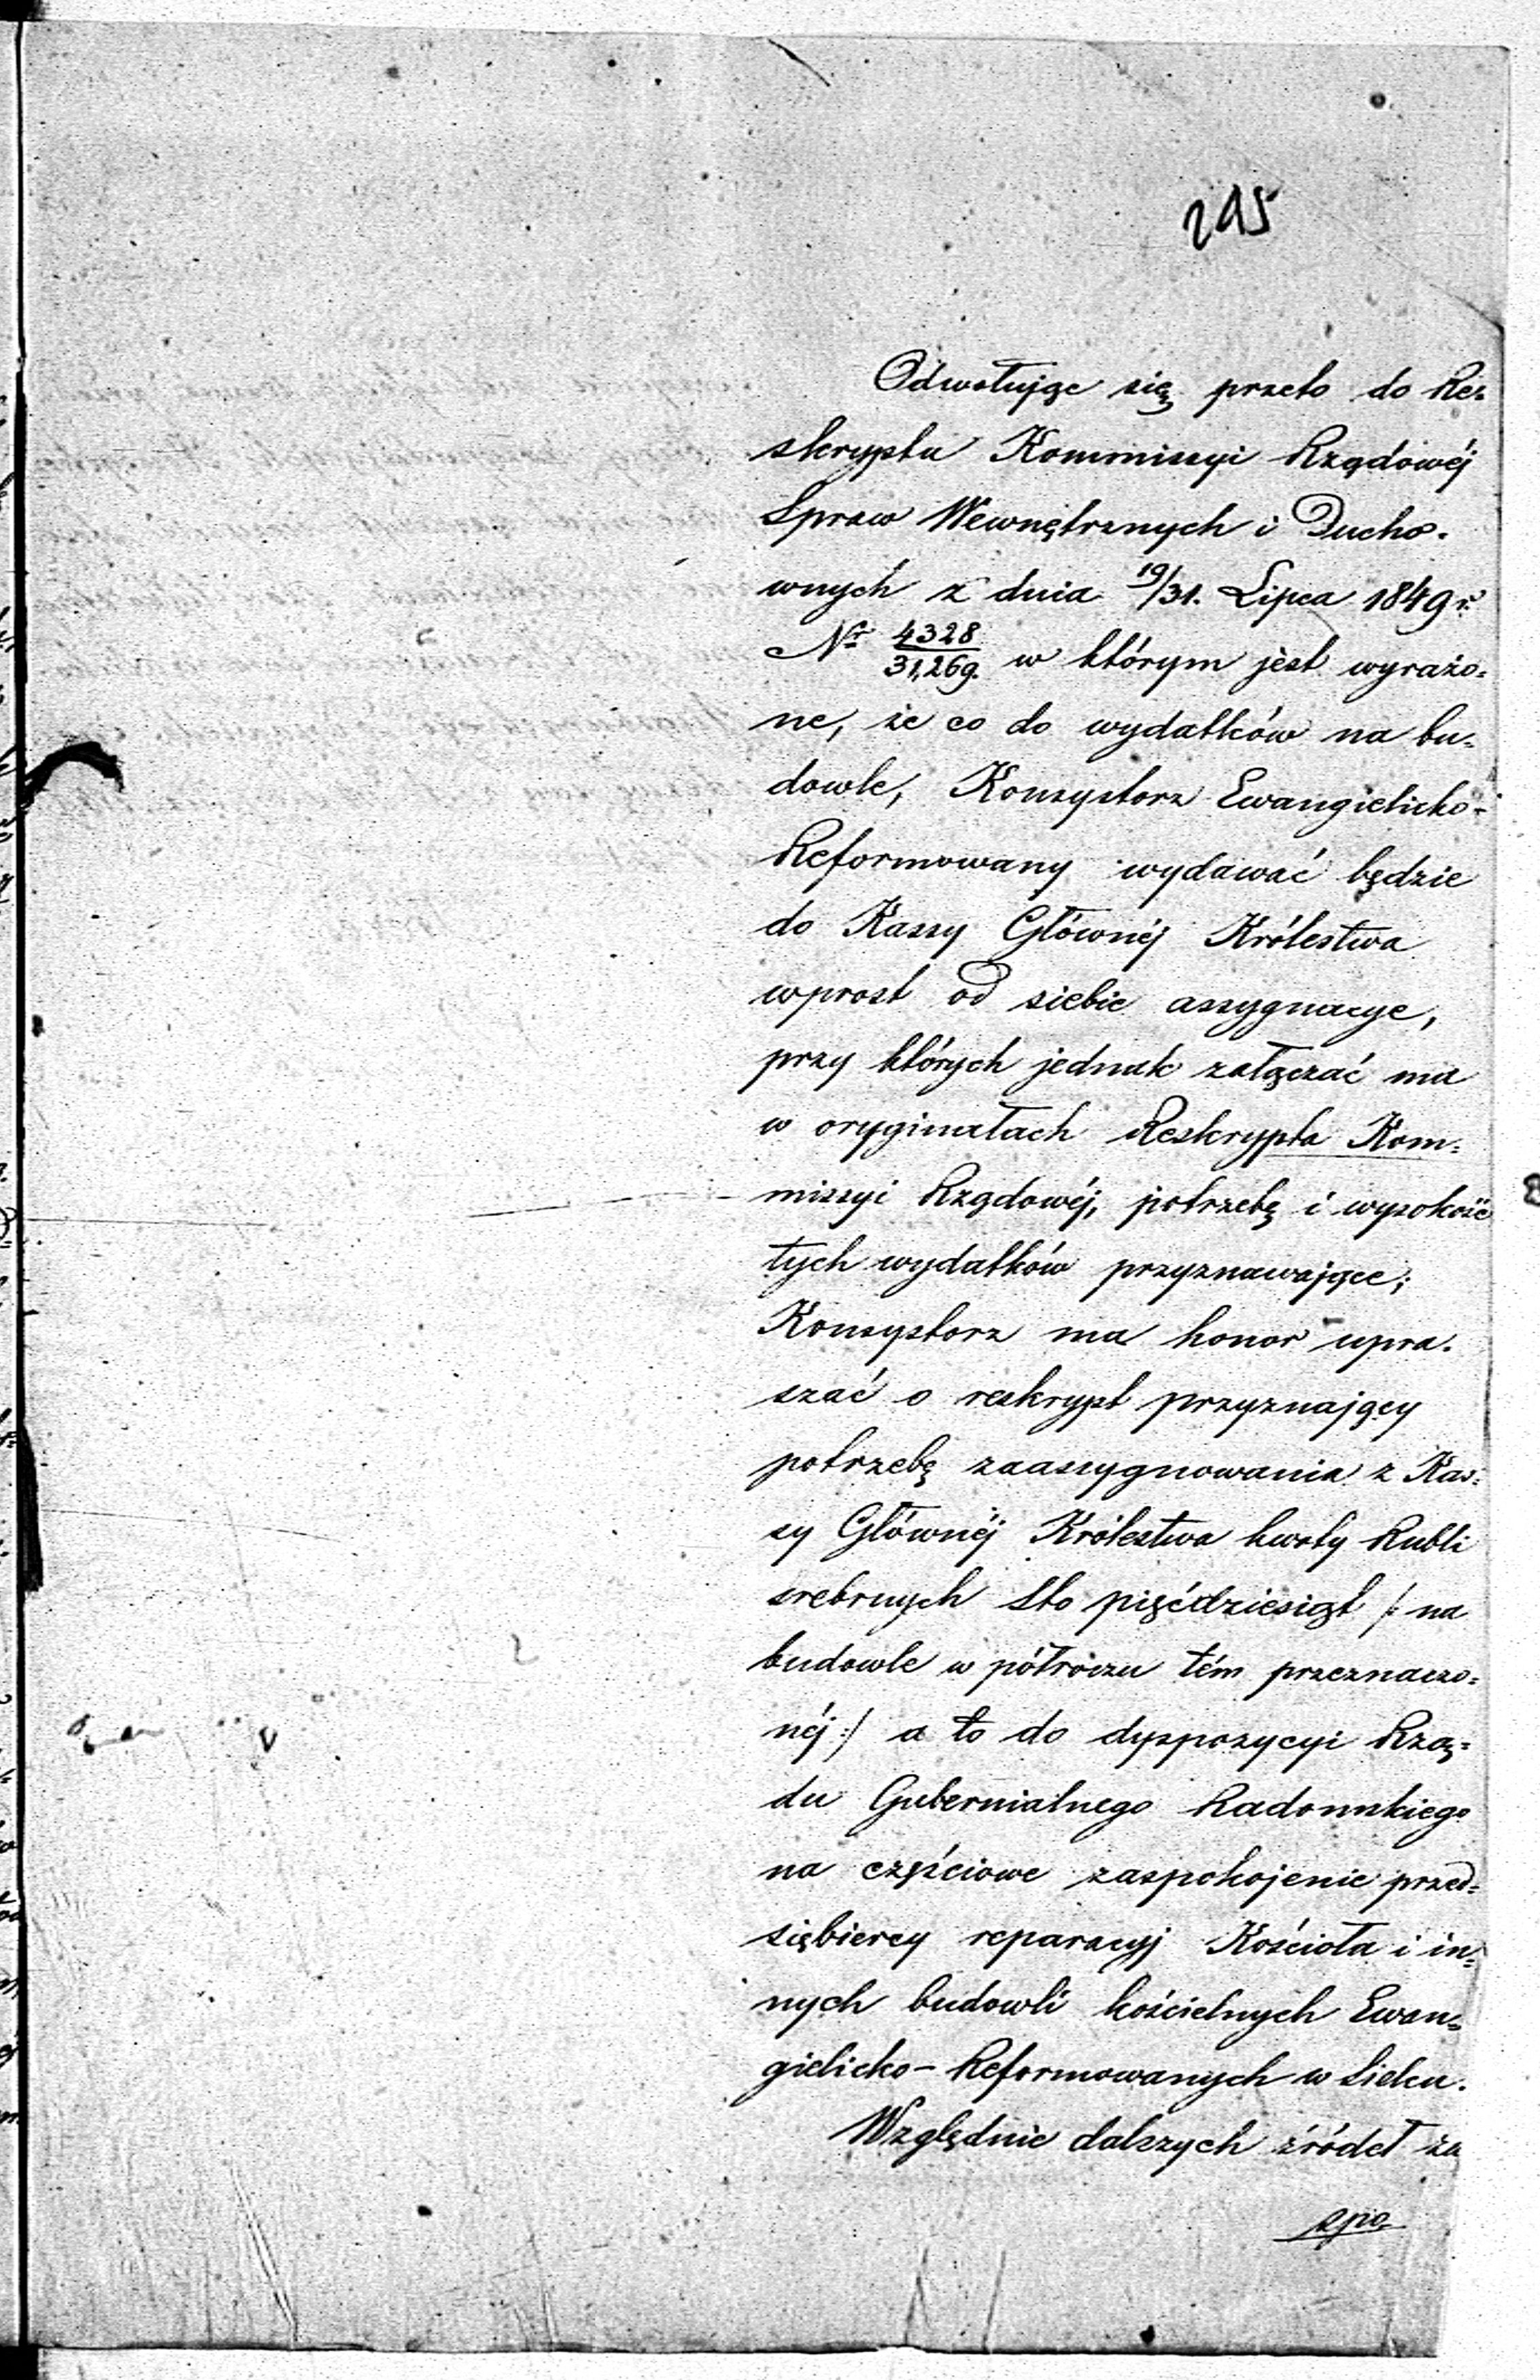 295
Odwołując się przeto do Re-
skryptu Kommissyi Rządowéj
Spraw Wewnętrznych i Ducho-
wnych z dnia 19/31. Lipca 1849 r.
Nr 4328/31,269. w którym jest wyrażo-
ne, że co do wydatków na bu-
dowle, Konsystorz Ewangielicko-
Reformowany wydawać będzie
do Kassy Głównéj Królestwa
wprost od siebie assygnacye,
przy których jednak załączać ma
w oryginałach Reskrypta Kom-
missyi Rządowéj, potrzebę i wysokość
tych wydatków przyznawające;
Konsystorz ma honor upra-
szać o reskrypt przyznający
potrzebę zaassygnowania z Kas-
sy Głównéj Królestwa kwoty Rubli
srebrnych Sto pięćdziesiąt /: na
budowle w półroczu tém przeznaczo-
néj :/ a to do dyspozycyi Rzą-
du Gubernialnego Radomskiego
na częściowe zaspokojenie przed-
siębiercy reparacyj Kościoła i in-
nych budowli kościelnych Ewan-
gielicko-Reformowanych w Sielcu.
Względnie dalszych źródeł za
spo-